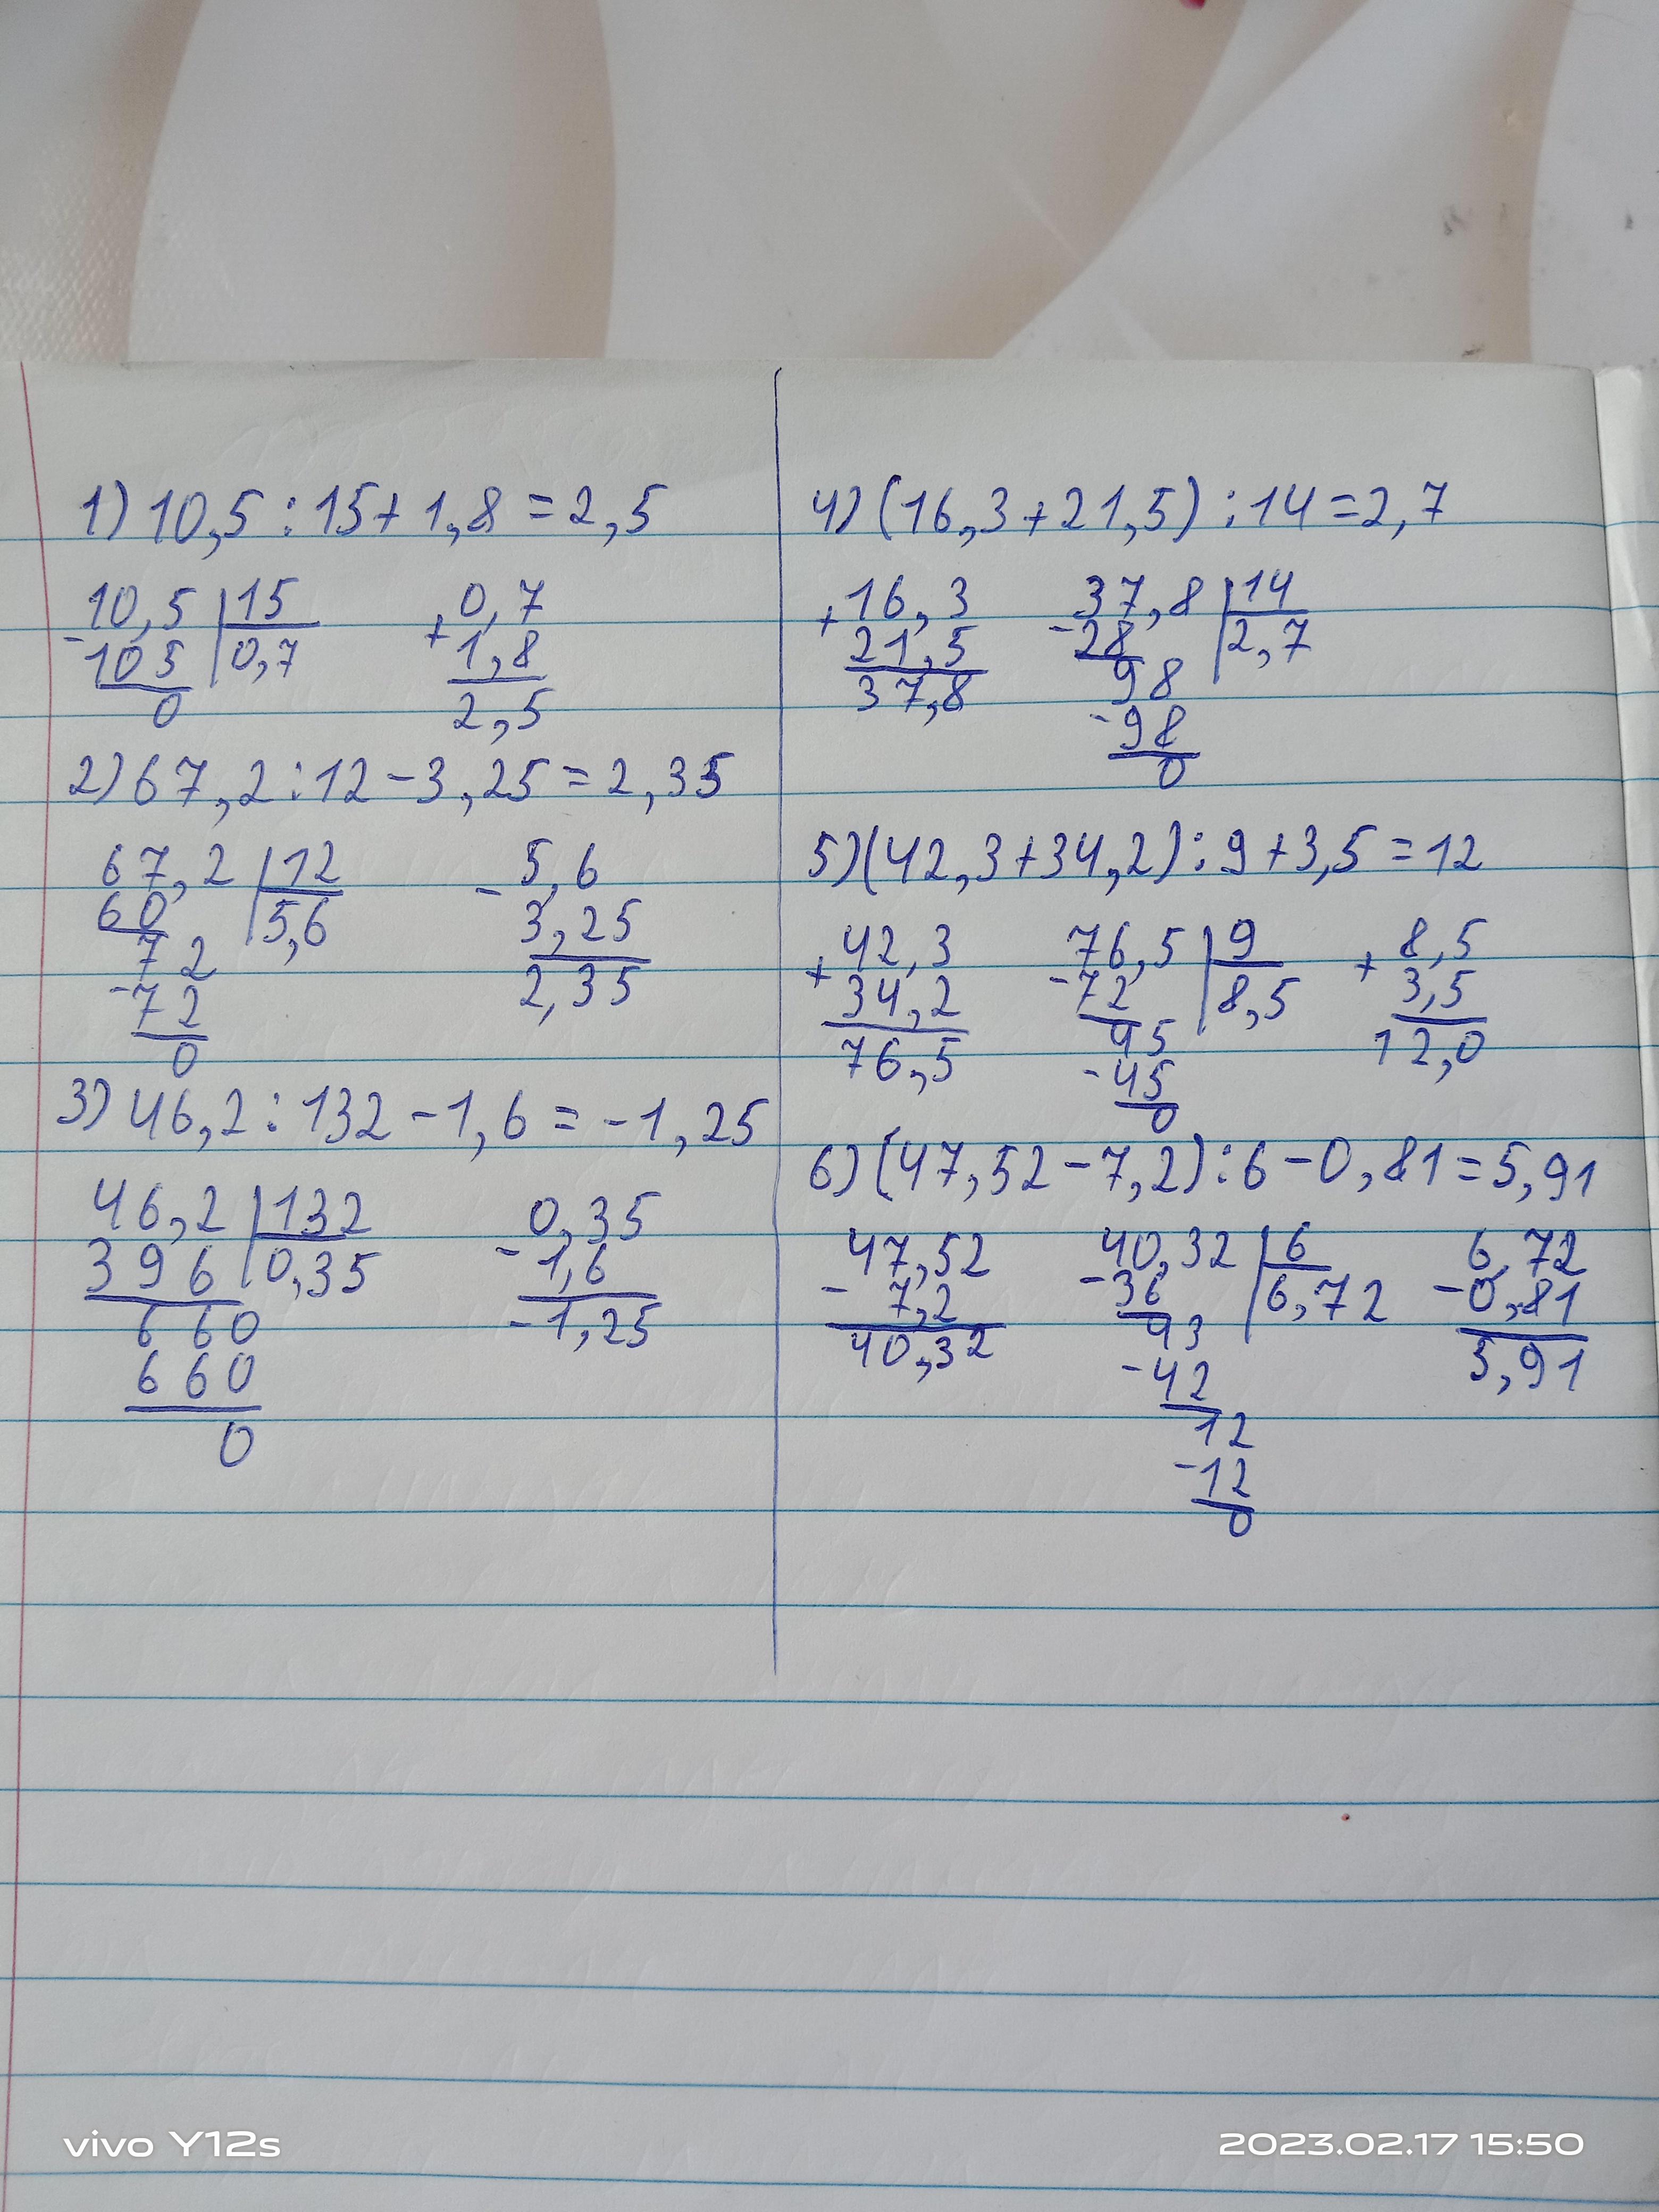 1) 10,5 : 15 + 1,8 = 2,5
10,5 | 15    0,7
- 105 | 0,7    + 1,8
0    2,5
2) 67,2 : 12 - 3,25 = 2,35
67,2 | 12    - 5,6
60 | 5,6    3,25
72    2,35
- 72
0
3) 46,2 : 132 - 1,6 = -1,25
46,2 | 132    0,35
396 | 0,35    - 1,6
660    -1,25
660
0
4) (16,3 + 21,5) : 14 = 2,7
+ 16,3    37,8 | 14
21,5    - 28 | 2,7
37,8    98
- 98
0
5) (42,3 + 34,2) : 9 + 3,5 = 12
+ 42,3    76,5 | 9    + 8,5
34,2    - 72 | 8,5    3,5
76,5    45    12,0
- 45
0
6) (47,52 - 7,2) : 6 - 0,81 = 5,91
47,52    40,32 | 6    6,72
- 7,2    - 36 | 6,72    - 0,81
40,32    43    5,91
- 42
12
- 12
0
vivo Y12s    2023.02.17 15:50